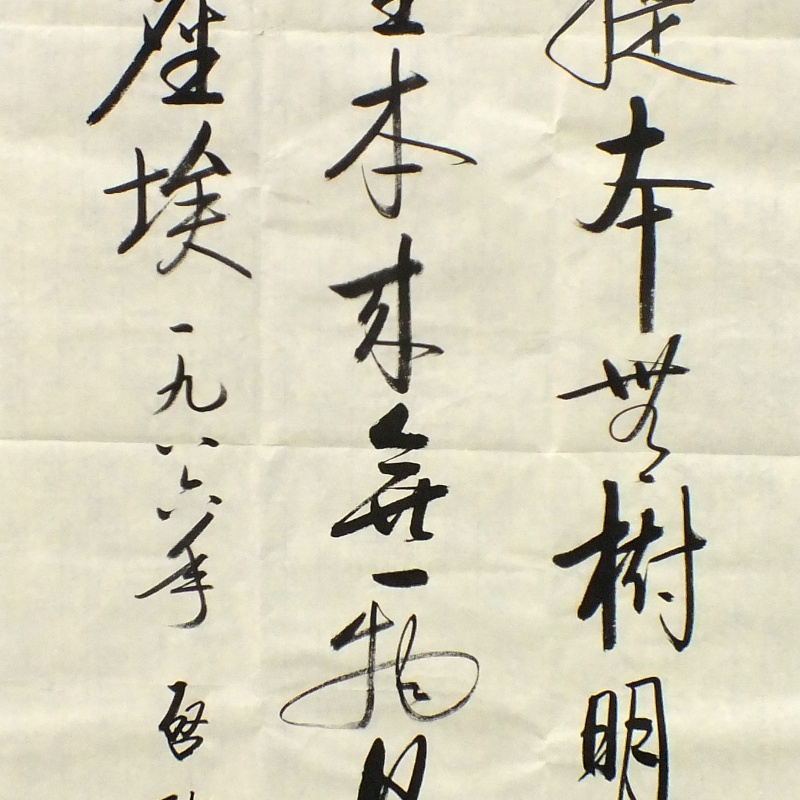 提本無樹明
本來無一物
塵埃
一九八六年 啓